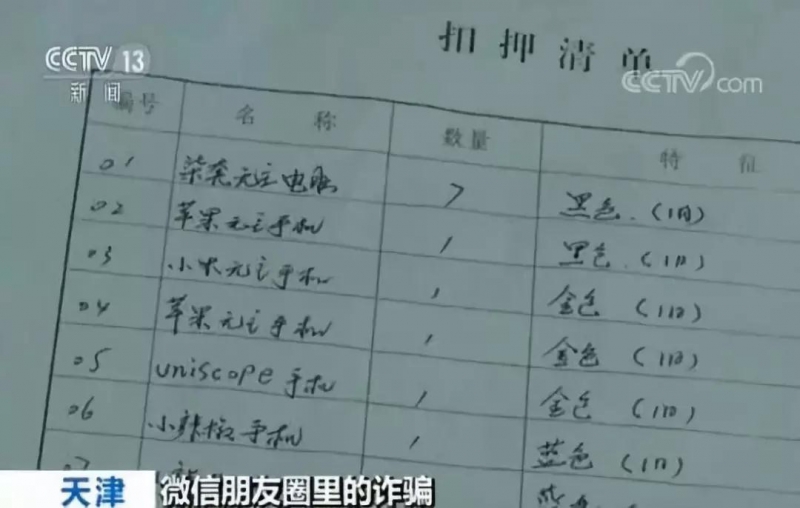 CCTV 13
新闻
扣押清单
CCTV.com
编号 名称 数量 特征
01 柒套无主电脑 7 黑色.(旧)
02 苹果无主手机 1 黑色.(旧)
03 小米无主手机 1 金色(旧)
04 苹果无主手机 1 金色(旧)
05 uniscope手机 1 金色(旧)
06 小辣椒手机 1 蓝色(旧)
07
天津 微信朋友圈里的诈骗